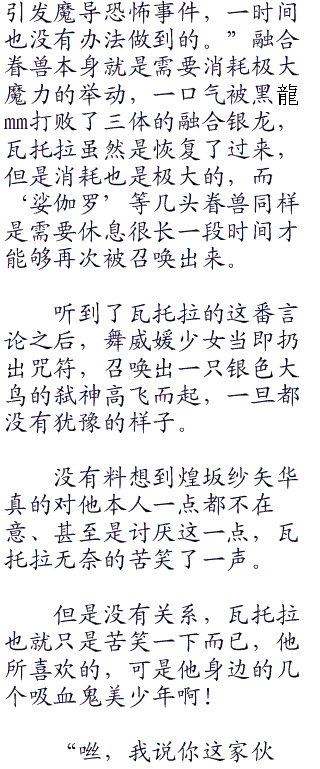 引发魔导恐怖事件，一时间
也没有办法做到的。”融合
眷兽本身就是需要消耗极大
魔力的举动，一口气被黑龍
mm打败了三体的融合银龙，
瓦托拉虽然是恢复了过来，
但是消耗也是极大的，而
‘娑伽罗’等几头眷兽同样
是需要休息很长一段时间才
能够再次被召唤出来。
听到了瓦托拉的这番言
论之后，舞威媛少女当即扔
出咒符，召唤出一只银色大
鸟的弑神高飞而起，一旦都
没有犹豫的样子。
没有料想到煌坂纱矢华
真的对他本人一点都不在
意、甚至是讨厌这一点，瓦
托拉无奈的苦笑了一声。
但是没有关系，瓦托拉
也就只是苦笑一下而已，他
所喜欢的，可是他身边的几
个吸血鬼美少年啊！
“咝，我说你这家伙